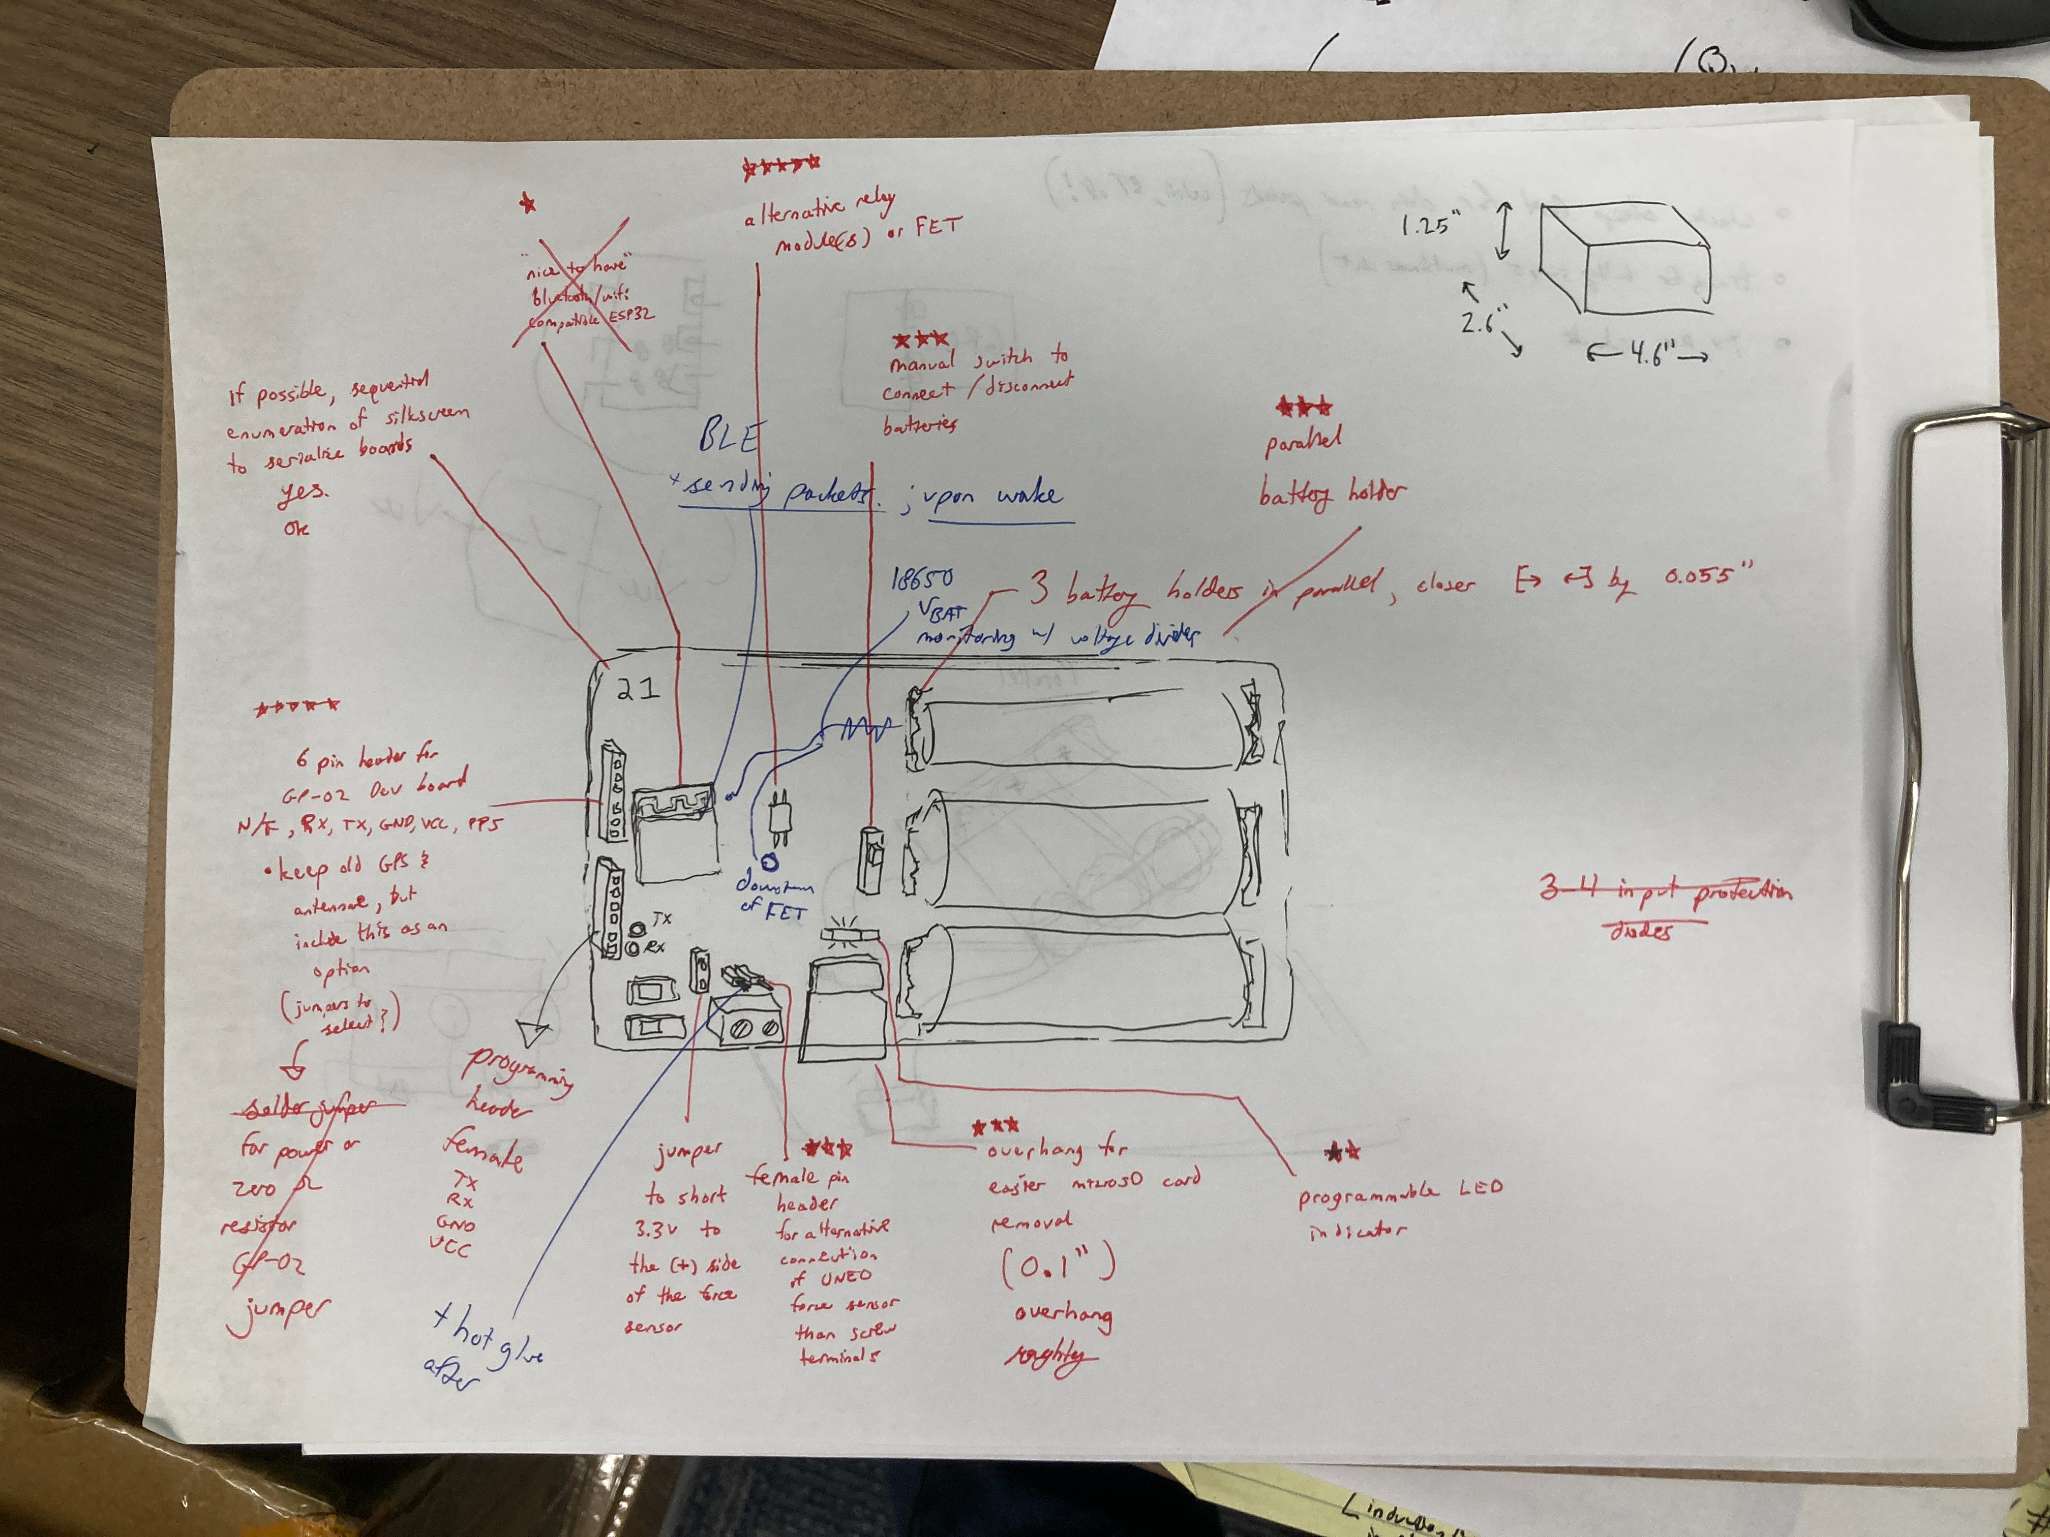 1.25"
2.6"
4.6"
"nice to have"
bluetooth/wifi
compatible ESP32
alternative relay
module(s) or FET
manual switch to
connect/disconnect
batteries
parallel
battery holder
If possible, sequential
enumeration of silkscreen
to serialize boards
yes.
ok
BLE
+ sending packets. ; upon wake
18650
VBAT
monitoring w/ voltage divider
3 battery holders in parallel, closer [→ ←] by 0.055"
21
6 pin header for
GP-02 Dev board
N/F, RX, TX, GND, VCC, PPS
• keep old GPS &
antennae, but
include this as an
option
(jumpers to
select?)
solder jumper
for power or
zero Ω
resistor
GP-02
jumper
TX
RX
downstream
of FET
3-4 input protection
diodes
programming
header
female
TX
RX
GND
VCC
+ hot glue
after
jumper
to short
3.3v to
the (+) side
of the force
sensor
female pin
header
for alternative
connection
of UNEO
force sensor
than screw
terminals
overhang for
easier microSD card
removal
(0.1")
overhang
roughly
programmable LED
indicator